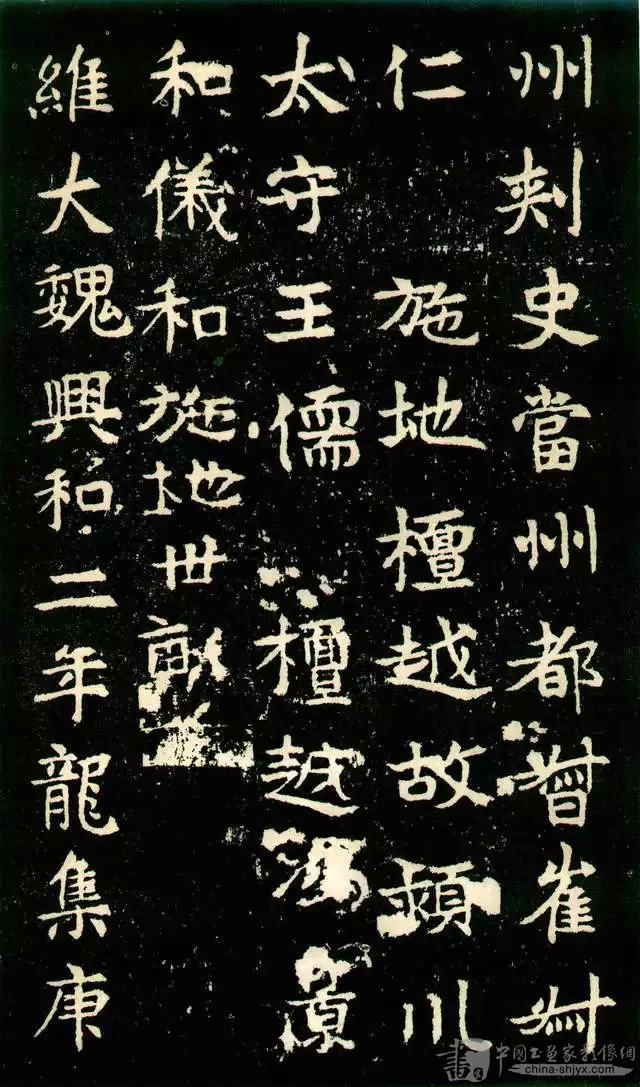 州刾史當州都督崔叔
仁 施地檀越故潁川
太守王儒 檀越
和儀和施地世
維大魏興和二年龍集庚
書 中國书画家影像網
china-shjyx.com